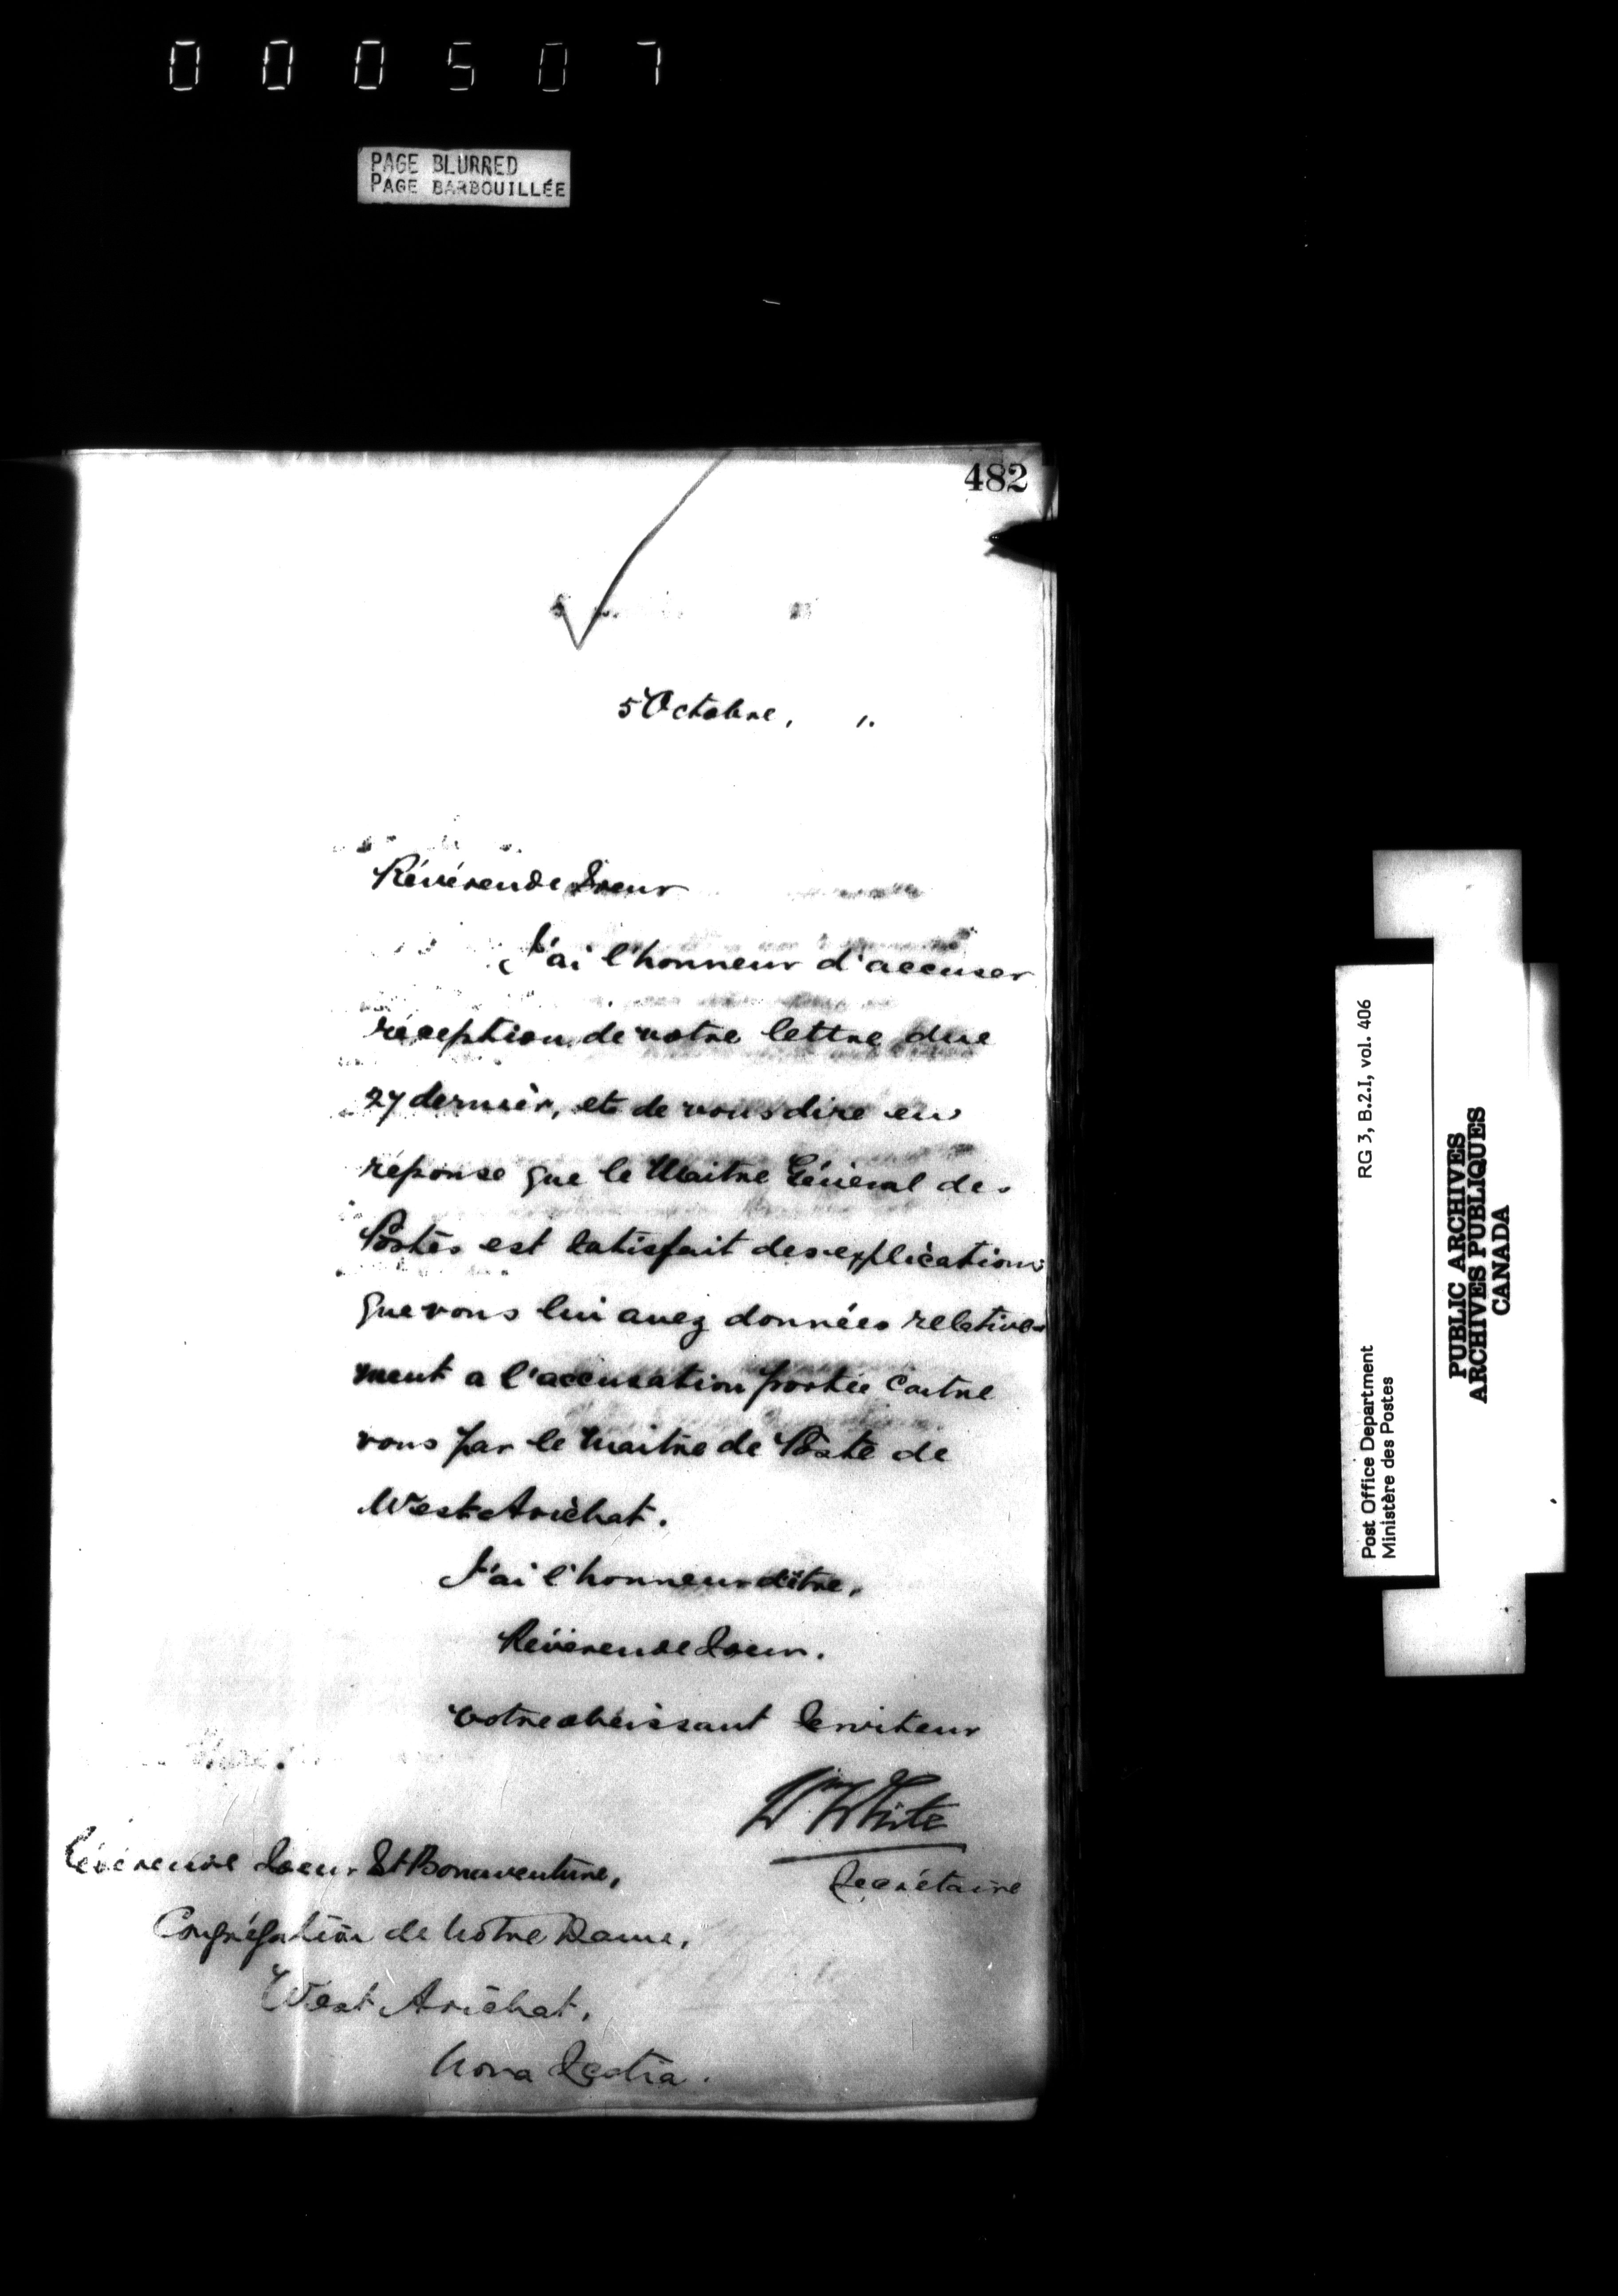 000507
PAGE BLURRED
PAGE BARBOUILLÉE
482
5 Octobre,
Révérende Soeur
J'ai l'honneur d'accuser
réception de votre lettre du
27 dernier, et de vous dire en
réponse que le Maitre Général des
Postes est satisfait des explications
que vous lui avez données relative-
ment a l'accusation portée contre
vous par le Maitre de Poste de
West Arichat.
J'ai l'honneur d'être,
Révérende Soeur.
Votre obéissant Serviteur
Wm White
Secrétaire
Révérende Soeur St Bonaventure,
Congrégation de Notre Dame,
West Arichat,
Nova Scotia.
Post Office Department
Ministère des Postes
RG 3, B.2.I, vol. 406
PUBLIC ARCHIVES
ARCHIVES PUBLIQUES
CANADA